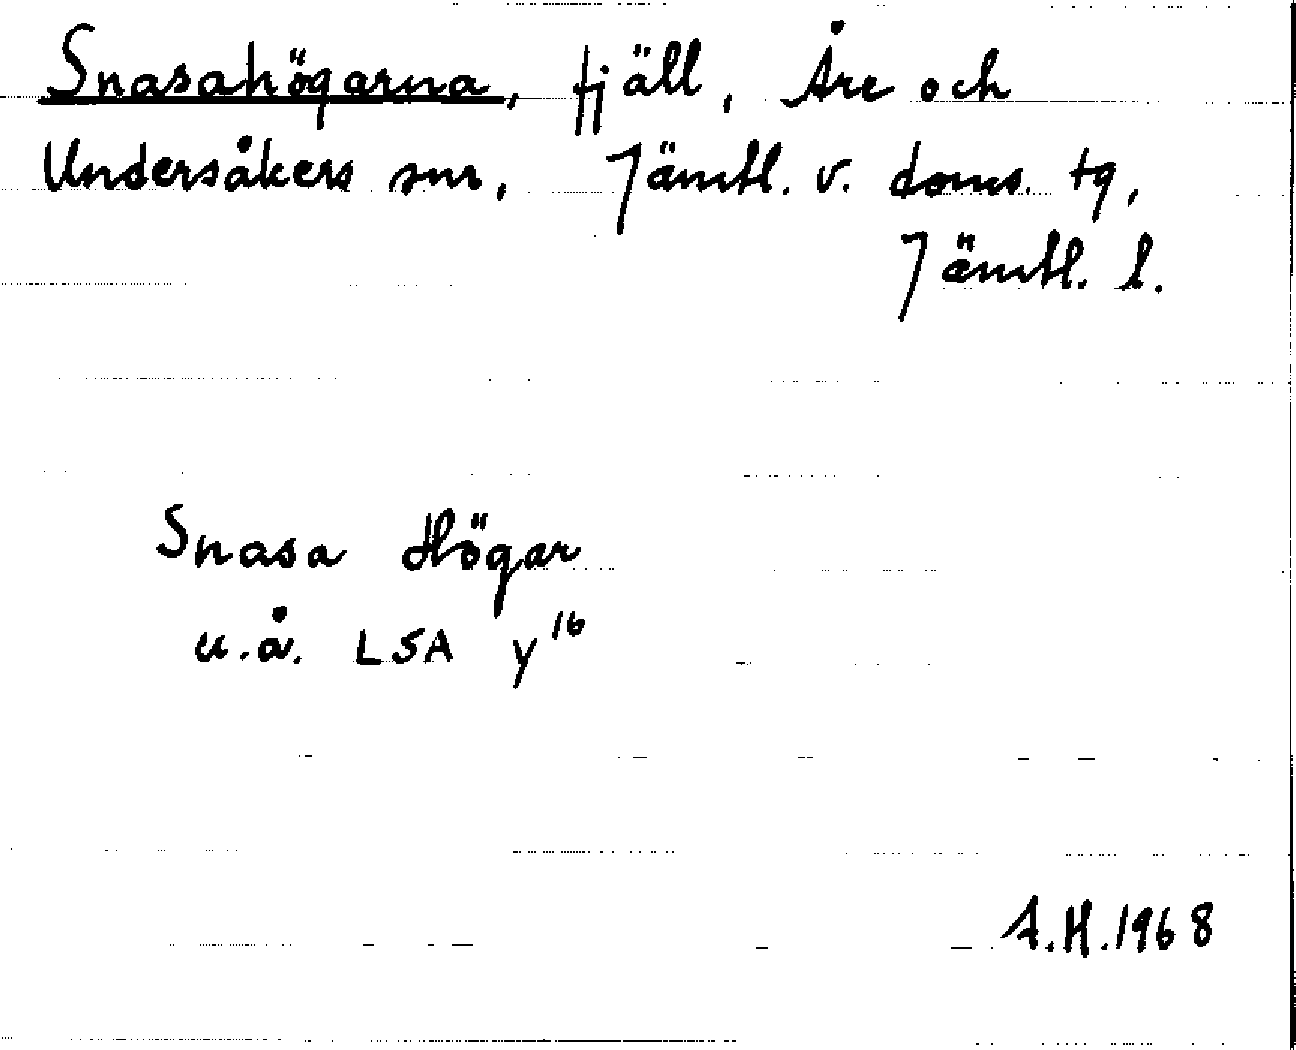 Snasahögarna, fjäll, Åre och
Undersåkers snr, Jämtl. v. doms. tg,
Jämtl. l.
Snasa Högar
u.å. LSA y¹⁶
A.H. 1968